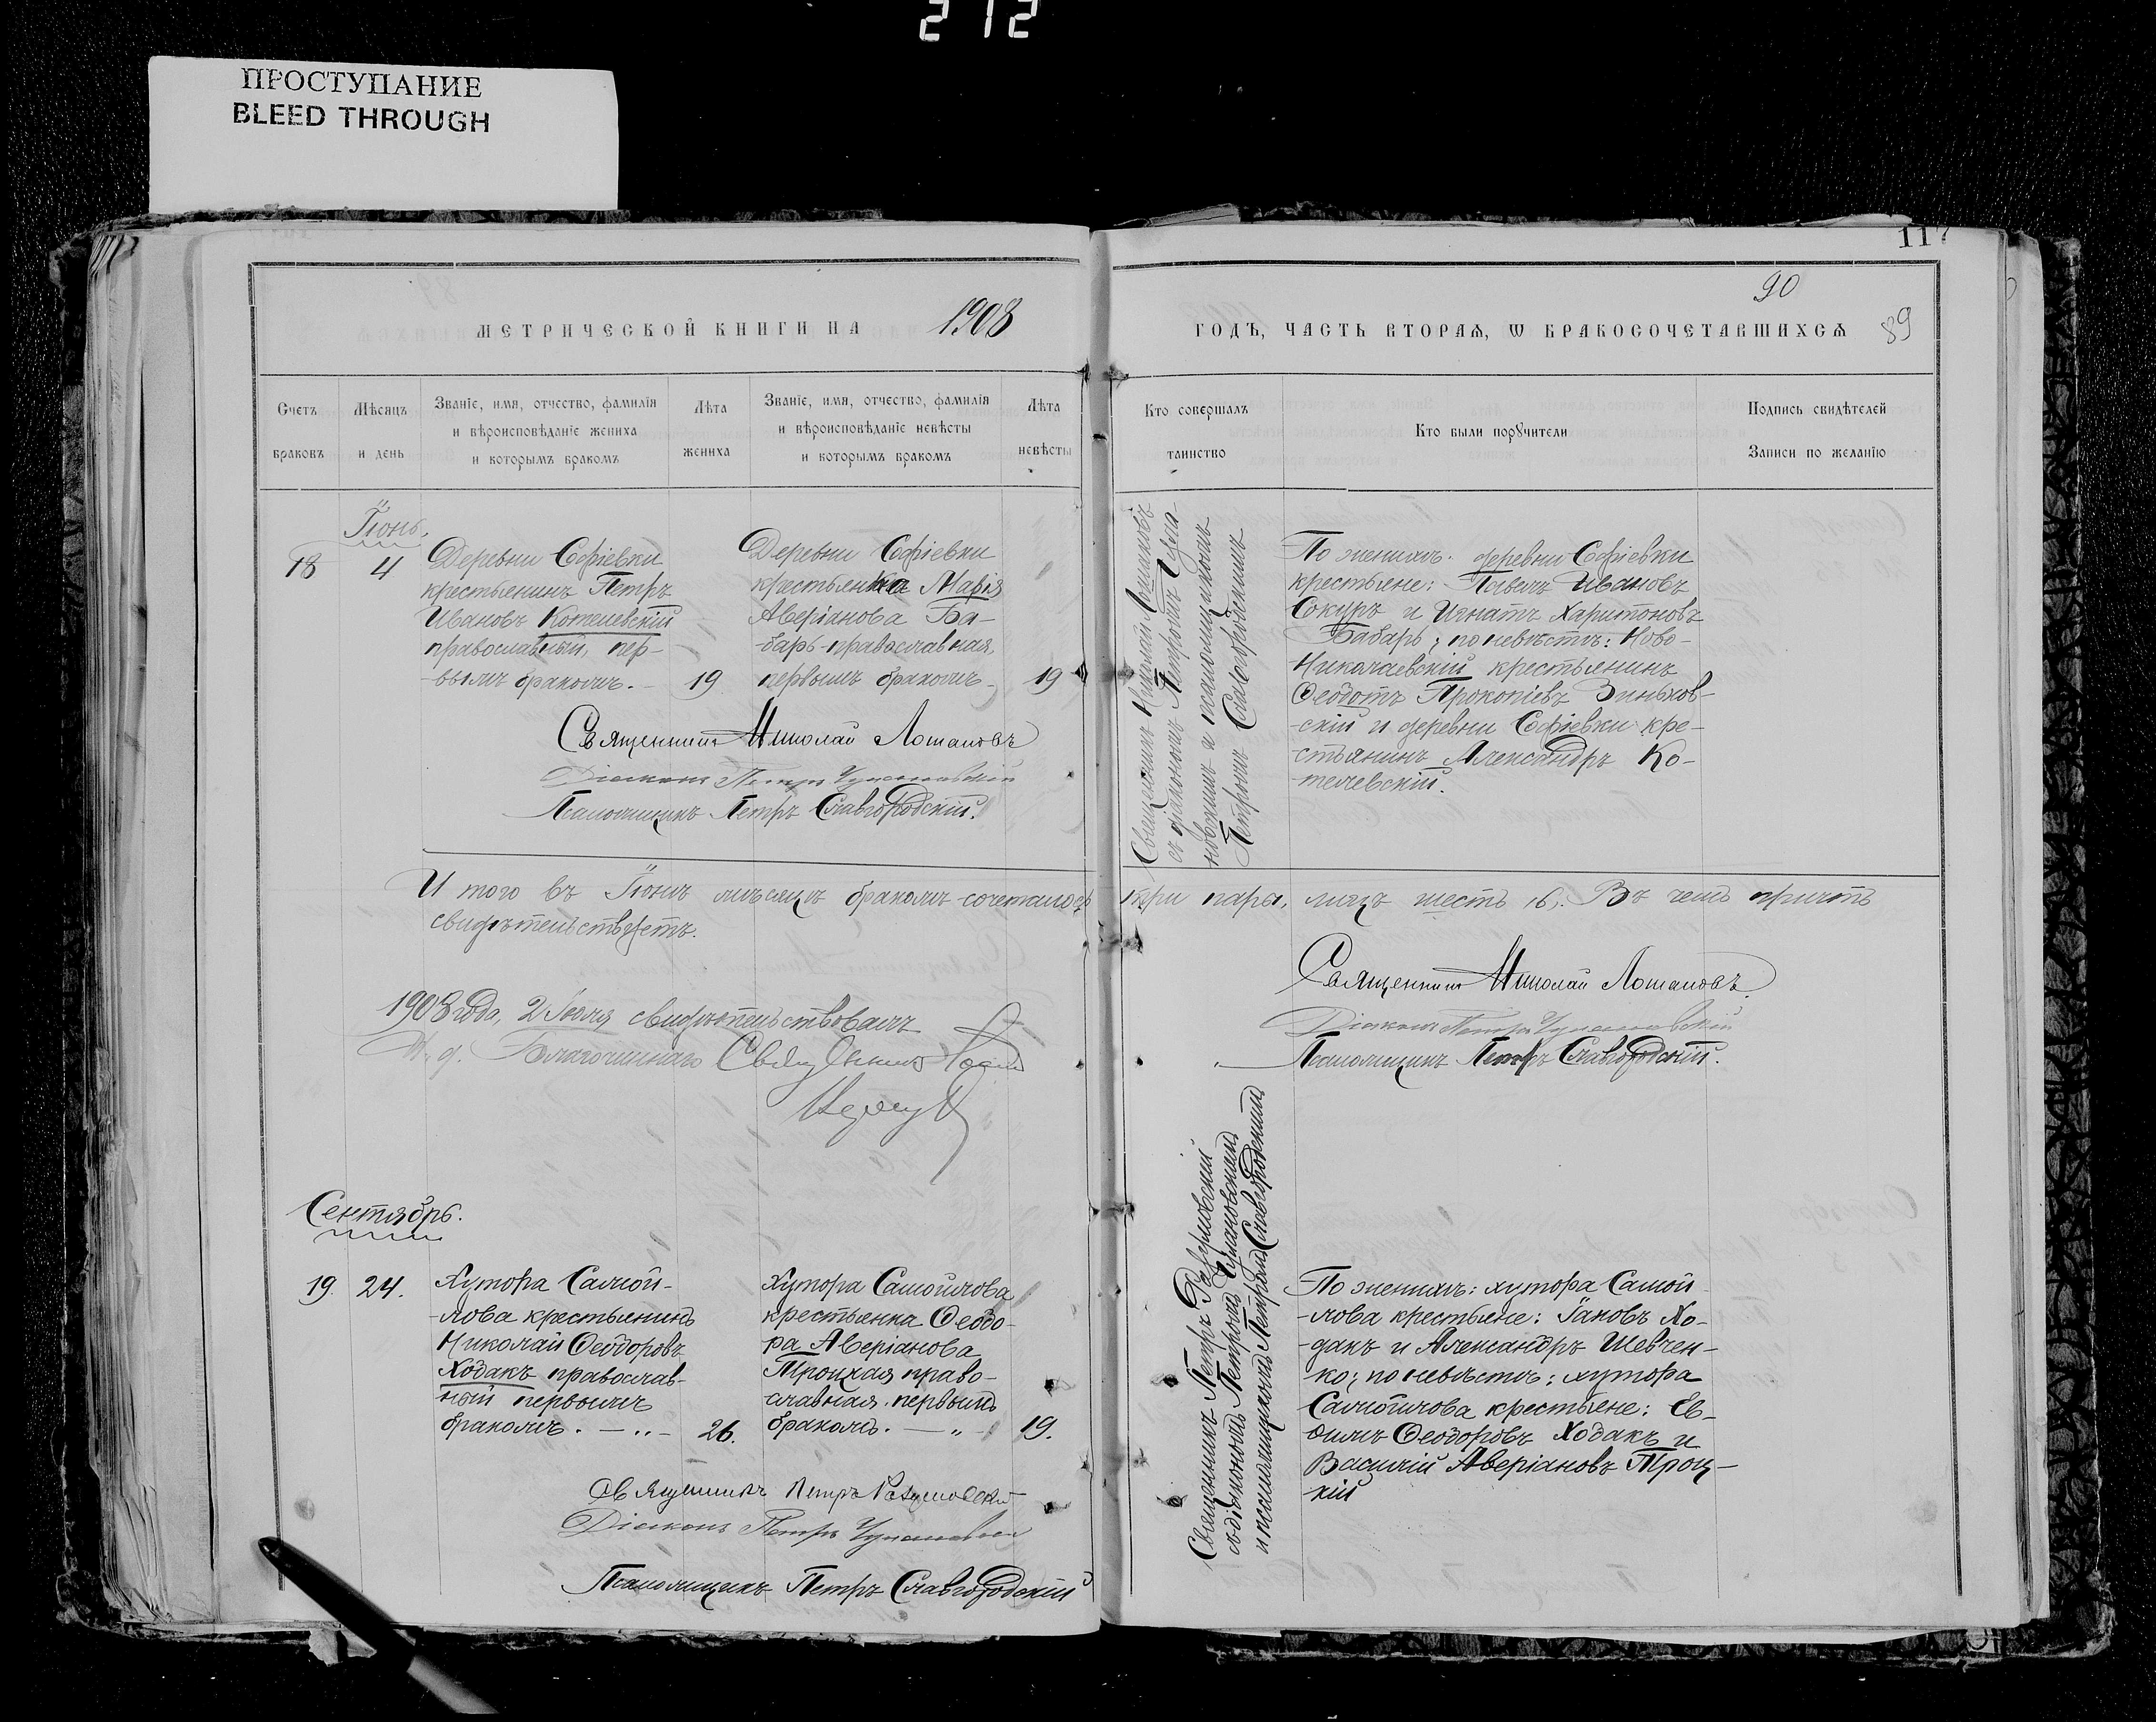 212
ПРОСТУПАНИЕ
BLEED THROUGH
МЕТРИЧЕСКОЙ КНИГИ НА 1908
Счетъ браковъ
Мѣсяцъ и день
Званіе, имя, отчество, фамилія
и вѣроисповѣданіе жениха
и которымъ бракомъ
Лѣта жениха
Званіе, имя, отчество, фамилія
и вѣроисповѣданіе невѣсты
и которымъ бракомъ
Лѣта невѣсты
Іюнь.
18
4
Деревни Софіевки
крестьянинъ Петръ
Ивановъ Котелевскій
православный, пер-
-вымъ бракомъ.
19
Деревни Софіевки
крестьянка Марія
Аверіанова Ба-
-барь православная,
первымъ бракомъ
19
Священникъ Николай Лошаковъ
Діаконъ Петръ
Псаломщикъ Петръ Славгородскій.
И того въ Іюнѣ мѣсяцѣ бракомъ сочеталось
свидѣтельствуетъ.
1908 года, 2 Іюля свидѣтельствовалъ
И. д. Благочиннаго Священникъ
Сентябрь.
19.
24.
Хутора Самой-
-лова крестьянинъ
Николай Ѳеодоровъ
Ходакъ православ-
ный первымъ
бракомъ.
26.
Хутора Самойлова
крестьянка Ѳеодо-
ра Аверіанова
Троцкая право-
славная, первымъ
бракомъ.
19.
Священникъ Петръ Разумовскій
Діаконъ Петръ
Псаломщикъ Петръ Славгородскій
117
90
89
ГОДЪ, ЧАСТЬ ВТОРАѦ, Ѡ БРАКОСОЧЕТАВШИХСѦ
Кто совершалъ таинство
Кто были порꙋчители
Подпись свидѣтелей
Записи по желанію
Священникъ Николай Лошаковъ
съ діакономъ Петромъ
новскимъ и псаломщикомъ
Петромъ Славгородскимъ
По женихѣ: деревни Софіевки
крестьяне: Павелъ Ивановъ
Сокуръ и Игнатъ Харитоновъ
Бабарь; по невѣстѣ: Ново-
Николаевскій крестьянинъ
Ѳеодотъ Прокопіевъ Зиньков-
-скій и деревни Софіевки кре-
-стьянинъ Александръ Ко-
-телевскій.
три пары, лицъ шесть (6). Въ чемъ причтъ
Священникъ Николай Лошаковъ
Діаконъ Петръ
Псаломщикъ Петръ Славгородскій.
Священникъ Петръ Разумовскій
съ діакономъ Петромъ
и псаломщикомъ Петромъ Славгородскимъ
По женихѣ: хутора Самой
-лова крестьяне: Іаковъ Хо-
-дакъ и Александръ Шевчен-
ко; по невѣстѣ: хутора
Самойлова крестьяне: Ев-
ѳимъ Ѳеодоровъ Ходакъ и
Василій Аверіановъ Троц-
кій